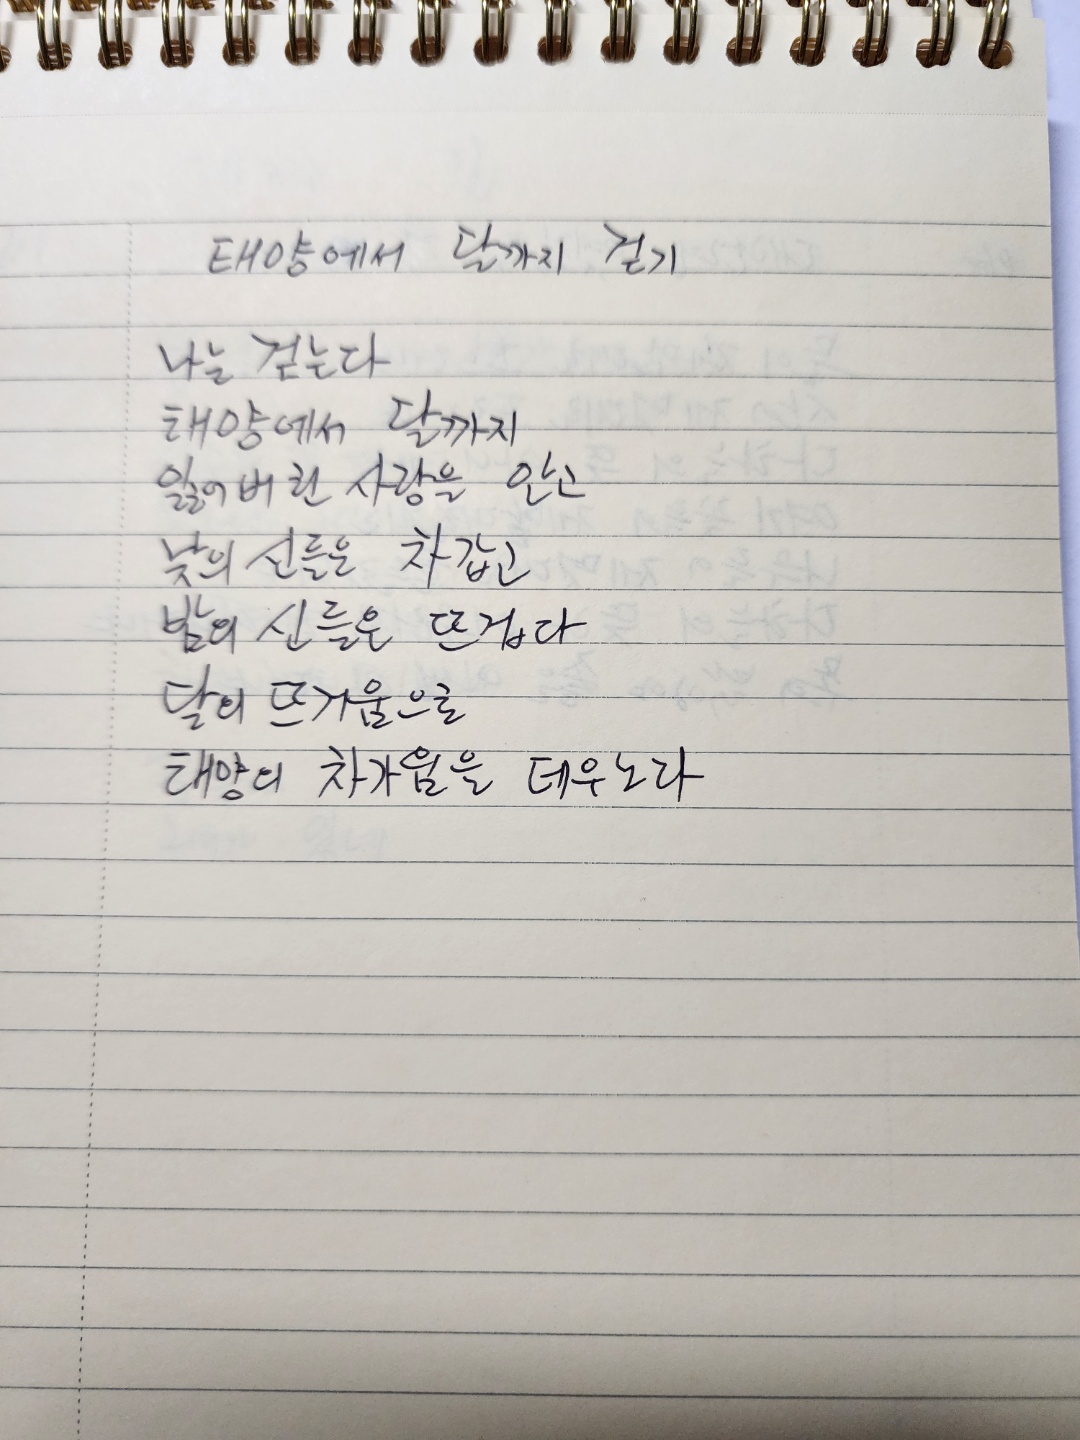 태양에서 달까지 걷기
나는 걷는다
태양에서 달까지
잃어버린 사랑을 안고
낮의 신들은 차갑고
밤의 신들은 뜨겁다
달의 뜨거움으로
태양의 차가움을 데우노라